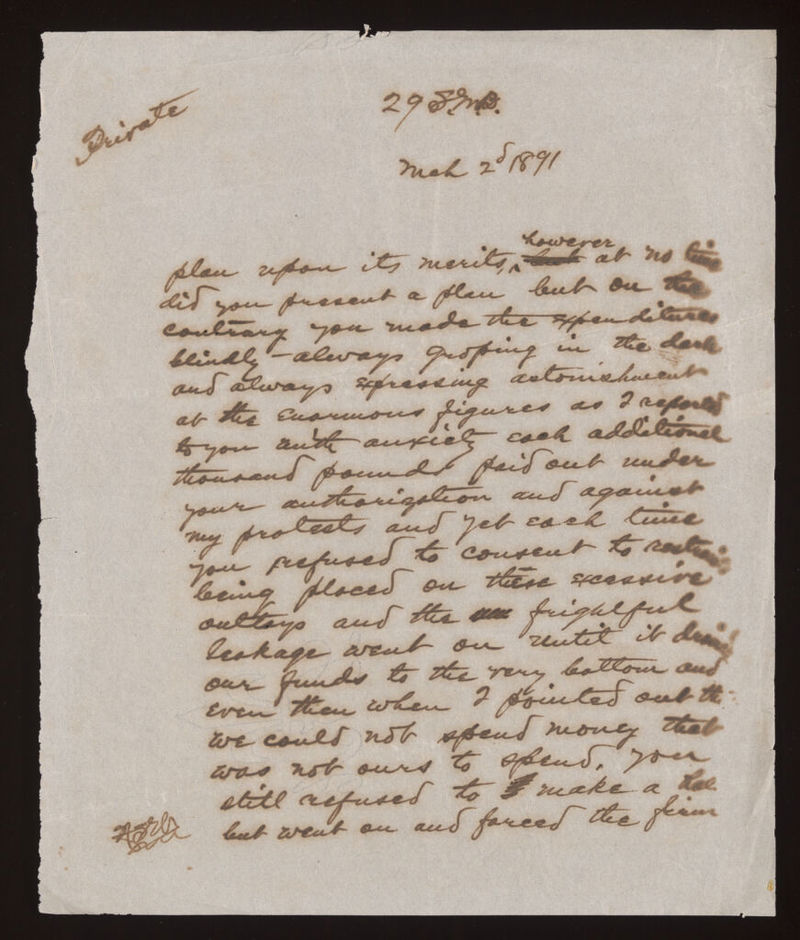 Private
29
Mch 2d 1891
however
plan upon its merits, at no time
did you present a plan but on the
contrary you made the expenditures
blindly - always groping in the dark
and always expressing astonishment
at the enormous figures as I reported
to you with anxiety each additional
thousand pounds paid out under
your authorization and against
my protests and yet each time
you refused to consent to
being placed on these excessive
outlays and the frightful
leakage went on until it
our funds to the very bottom and
even then when I pointed out th
we could not spend money that
was not ours to spend, you
still refused to make a
but went on and forced the firm